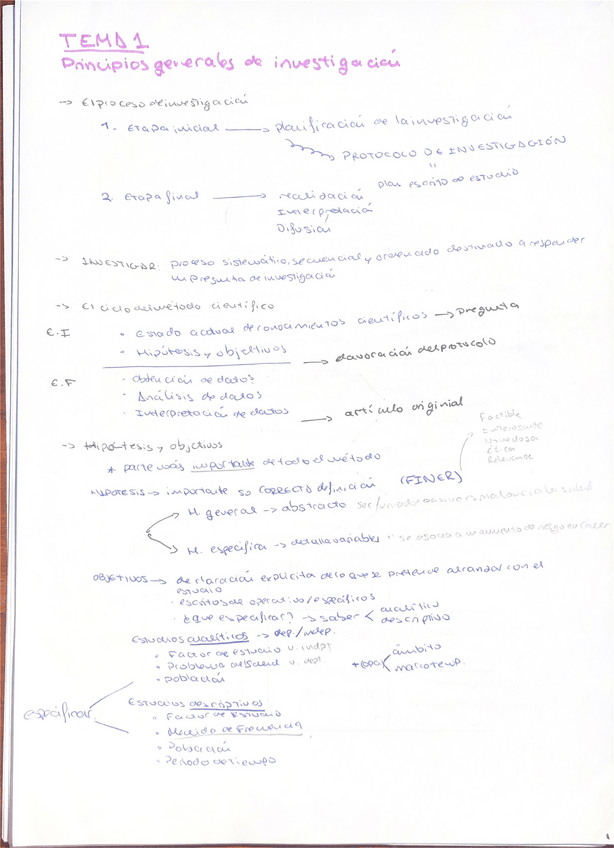 TEMA 1
Principios generales de investigación
→ El proceso de investigación
1. Etapa inicial → planificación de la investigación
PROTOCOLO DE INVESTIGACIÓN
=
plan escrito de estudio
2. Etapa final → realización
Interpretación
Difusión
→ INVESTIGAR: proceso sistemático, secuencial y ordenado destinado a responder
una pregunta de investigación
→ El ciclo del método científico
E.I
• Estado actual de conocimientos científicos → pregunta
• Hipótesis y objetivos → elavoración del protocolo
E.F
• Obtención de datos
• Análisis de datos
• Interpretación de datos → artículo original
→ Hipótesis y objetivos
* parte más importante de todo el método
HIPÓTESIS → importante su CORRECTA definición (FINER)
Factible
Interesante
Novedosa
Ética
Relevante
H. general → abstracto
H. específica → detalla variables
OBJETIVOS → declaración explícita de lo que se pretende alcanzar con el
estudio
• escritos de operativo/específicos
• ¿que especificar? → saber < analítico
descriptivo
Estudios analíticos → dep./indep.
• Factor de estudio v. indpt
• Problema de salud v. dept.
• población
ámbito
marco temp.
especificar
Estudios descriptivos
• Factor de Estudio
• Medida de Frecuencia
• Población
• Periodo de tiempo